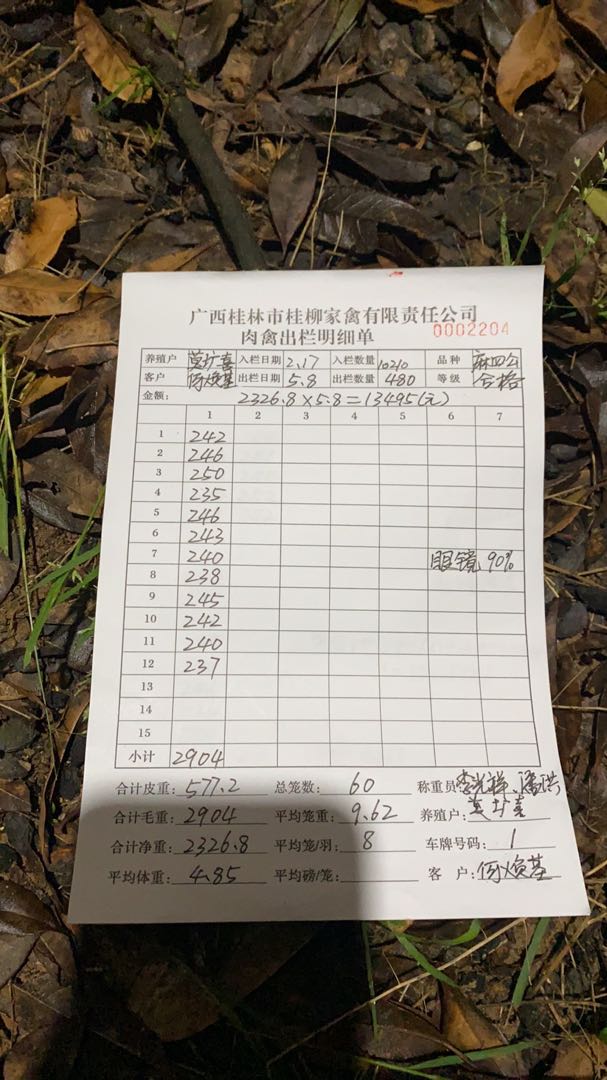 广西桂林市桂柳家禽有限责任公司
肉禽出栏明细单 0002204
养殖户 莫圹喜 入栏日期 2.17 入栏数量 10210 品种 麻四公
客户 何焕基 出栏日期 5.8 出栏数量 480 等级 合格
金额: 2326.8×5.8=13495(元)
1 2 3 4 5 6 7
1 242
2 246
3 250
4 235
5 246
6 243
7 240 眼镜 90%
8 238
9 245
10 242
11 240
12 237
13
14
15
小计 2904
合计皮重: 577.2 总笼数: 60 称重员:
合计毛重: 2904 平均笼重: 9.62 养殖户: 莫圹喜
合计净重: 2326.8 平均笼/羽: 8 车牌号码: 1
平均体重: 4.85 平均磅/笼: 客户: 何焕基